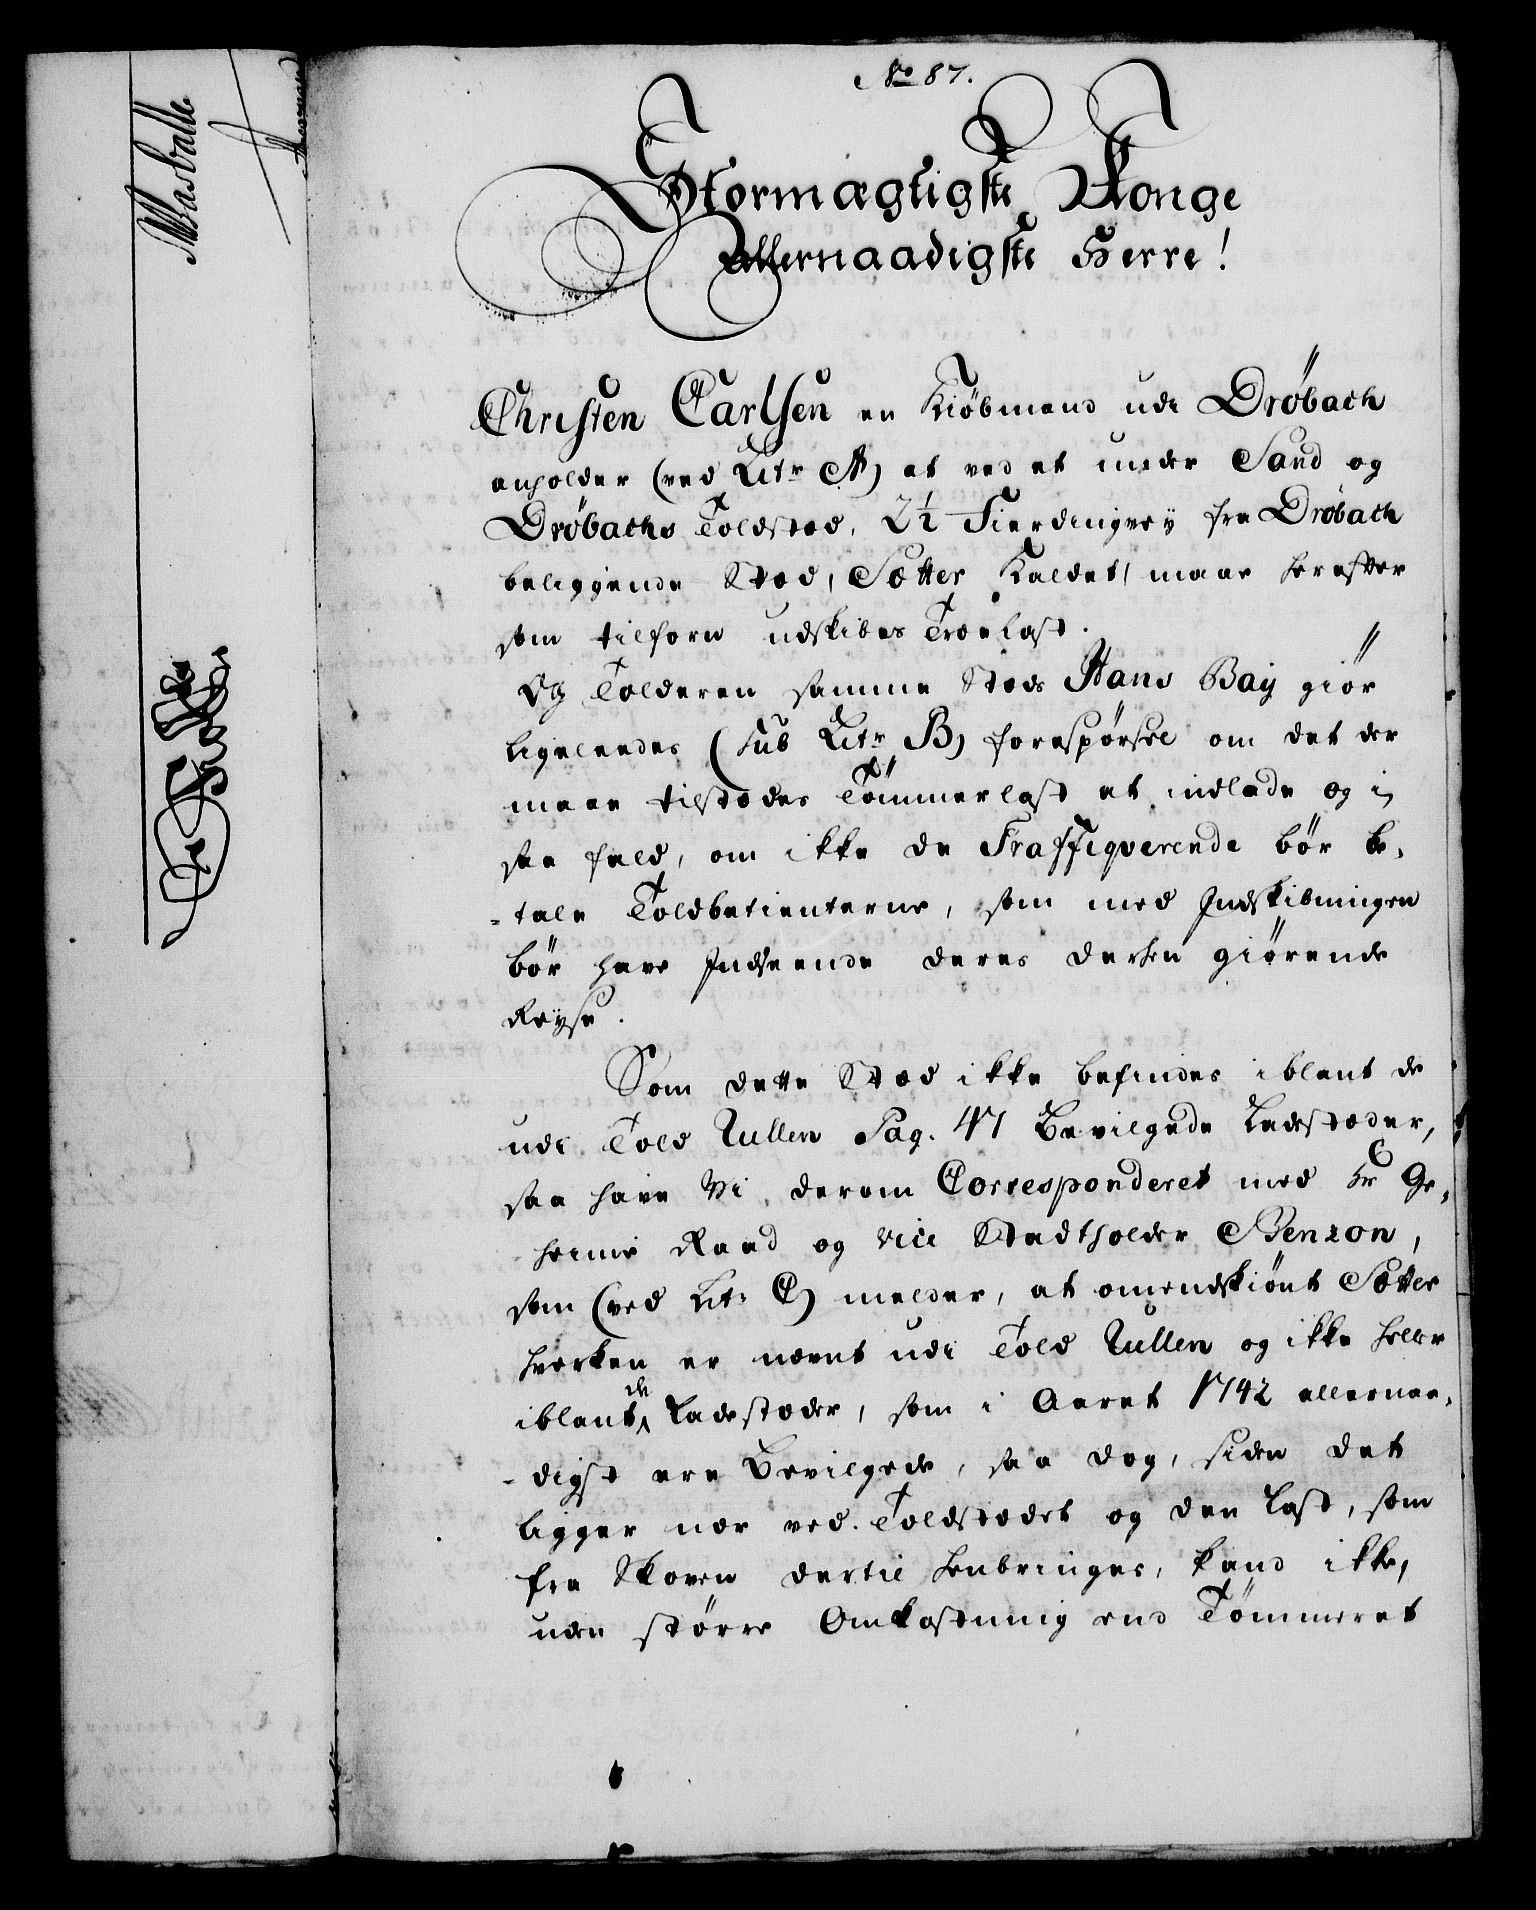 No 87.
Stormægtigste Konge
Allernaadigste Herre!
Christen Carlsen en Kiøbmand udi Drøbach
anholder (ved Litr A) at ved et under Sand og
Drøbachs Toldsted, 2½ Fierdingvey fra Drøbach
beliggende Stæd, Sætter kaldet, maae herefter
som tilforn udskibes Trælast.
Og Tolderen samme Stæds Hans Bay giør
ligeleedes (sub Litr B) forespørsel om det der
maae tilstædes Tømmerlast at indlade og i
saa fald, om ikke de Traffiqverende bør be-
-tale Toldbetienterne, som med Indskibningen
bør have Indseende deres derhen giørende
Reyse.
Som dette Stæd ikke befindes iblant de
udi Told Rullen Pag. 47 Bevilgede Ladestæder,
saa have Vi derom Corresponderet med Hr Ge-
heime Raad og Vice Stadtholder Benzon,
som (ved Litr C) melder, at omendskiønt Sætter
hverken er nævnt udi Told Rullen og ikke heller
iblant de Ladestæder, som i Aaret 1742 allernaa-
-digst ere Bevilgede, saa dog, siden det
ligger nær ved Toldstædet og den Last, som
fra Skoven dertil henbringes, kand ikke,
uden større Omkostning end Tømmeret